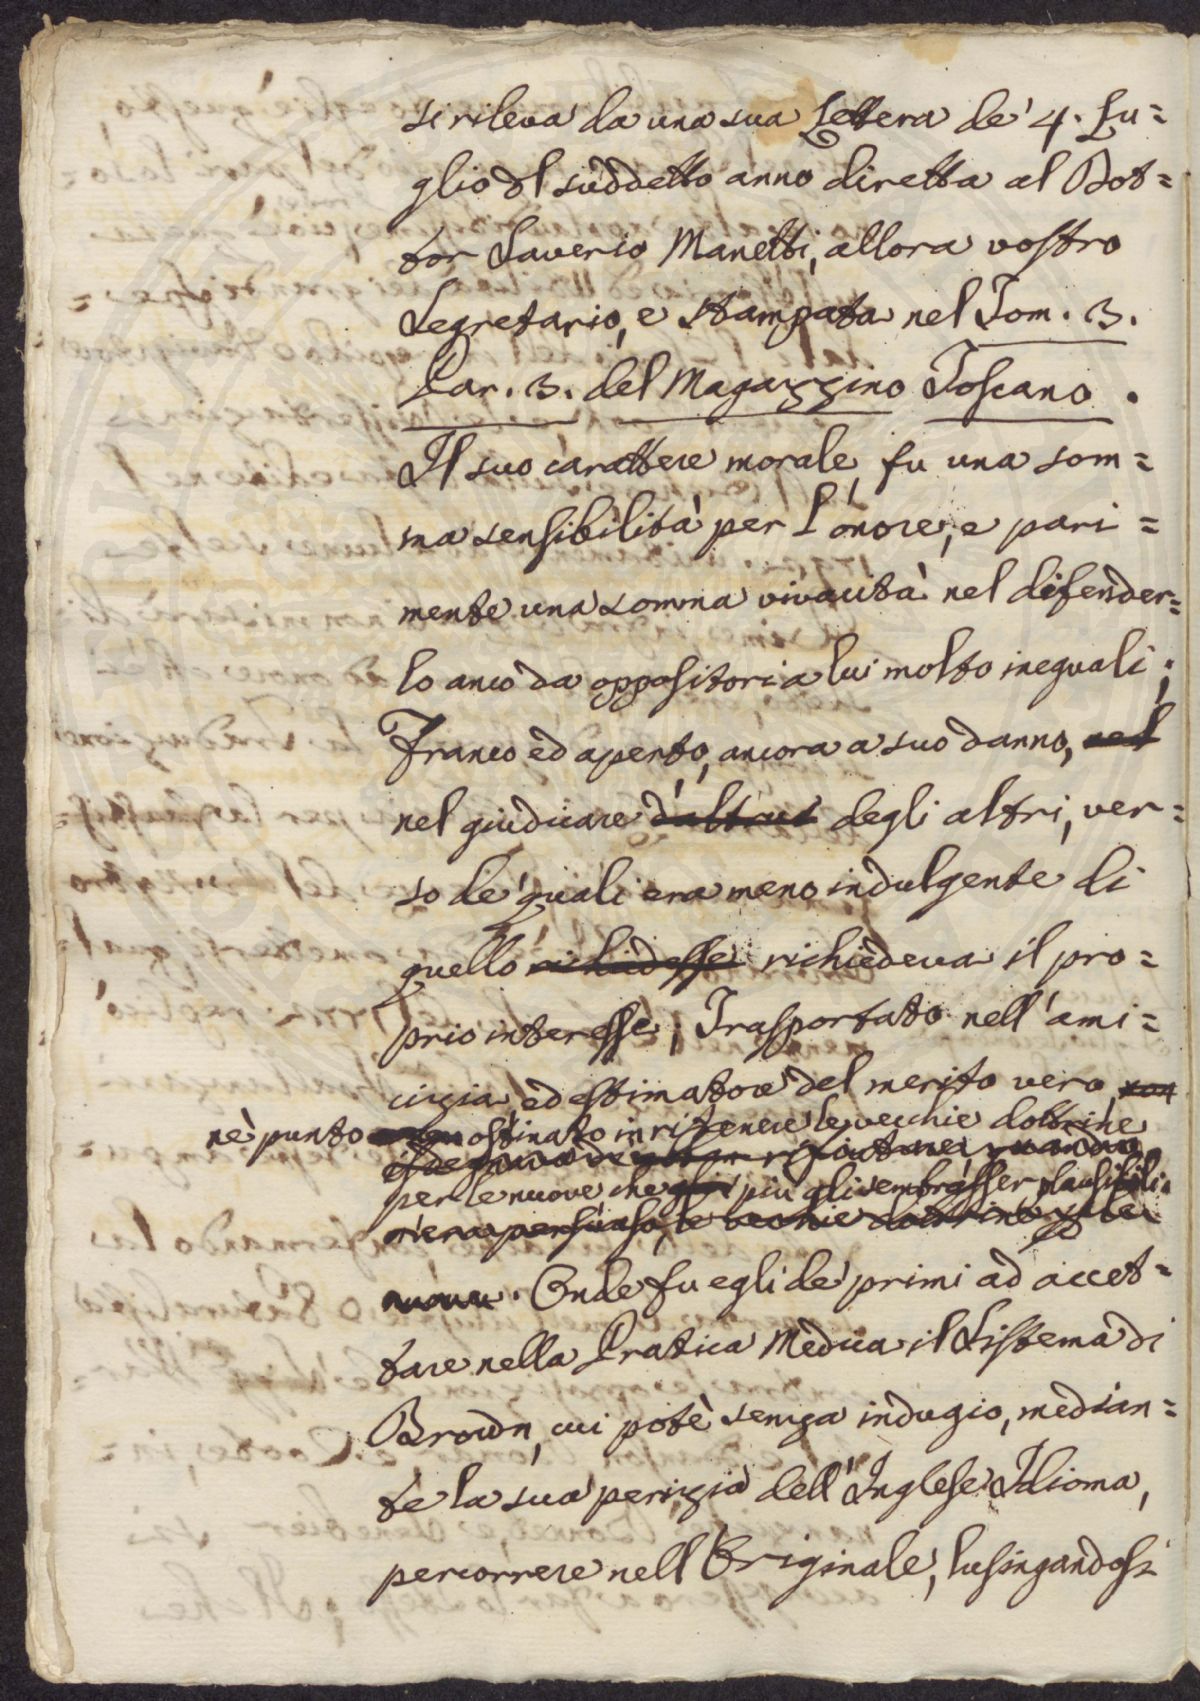 si rileva da una sua Lettera de' 4. Lu=
glio del suddetto anno diretta al Dot=
tor Saverio Manetti, allora vostro
Segretario, e stampata nel Tom. 3.
Par. 3. del Magazzino Toscano.
Il suo carattere morale, fu una som=
ma sensibilità per l'onore, e pari=
mente una somma vivacità nel difender=
lo anco da oppositori a lui molto ineguali;
Franco ed aperto, ancora a suo danno, nel
nel giudicare d'altrui degli altri, ver=
so de' quali era meno indulgente di
quello richiedesse richiedeva il pro=
prio interesse; Trasportato nell'ami=
cizia, ed estimatore del merito vero, non
nè punto ostinato in ritenere le vecchie dottrine
rifiutare, quando
per le nuove che più gli sembrasser plausibili.
n'era persuaso, le vecchie dottrine per le
nuove. Onde fu egli de' primi ad accet=
tare nella Pratica Medica il Sistema di
Brown, cui potè senza indugio, median=
te la sua perizia dell'Inglese Idioma,
percorrere nell'Originale, lusingandosi